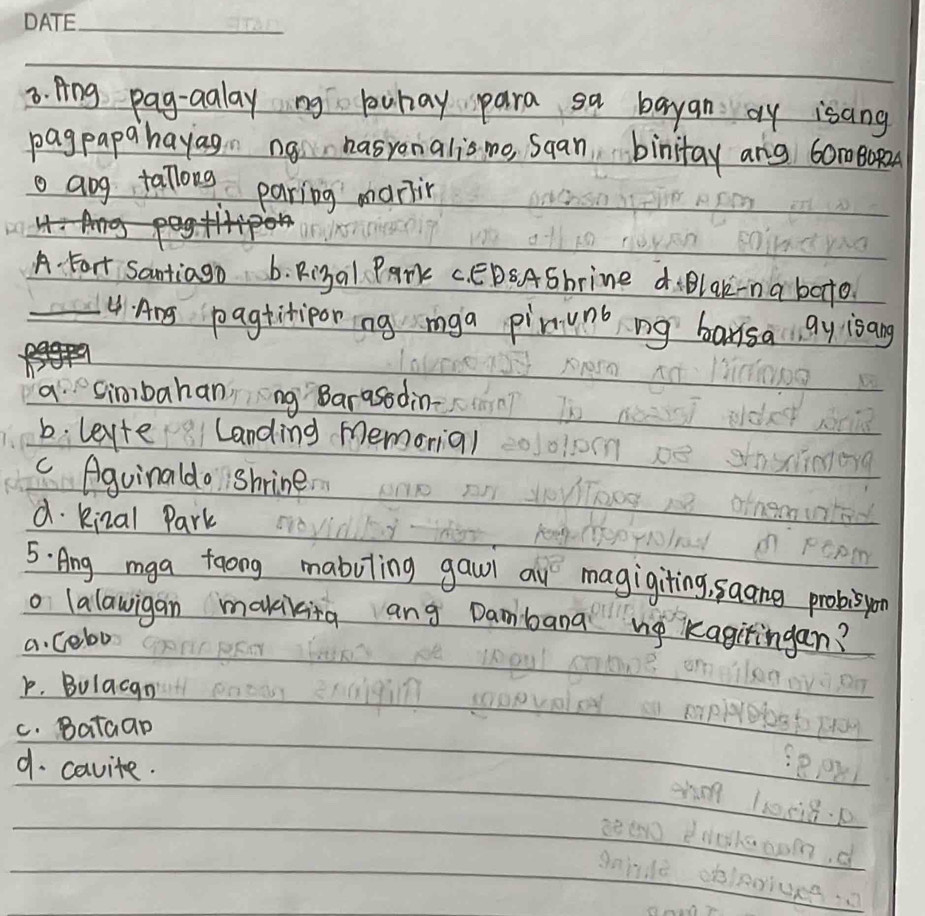 DATE
3. Ang pag-aalay ng buhay para sa bayan ay isang
pagpapahayag ng nasyonalismo, Saan binitay ang GOMBURZA
o ang tallong paring martir
4. Ang pagtitipon
A. Fort Santiago b. Rizal Park c. EDSA Shrine d. Biak-na bato
4. Ang pagtitipon ng mga pinuno ng bansa ay isang
pagpa
a. simbahan ng Barasoain
b. Leyte Landing Memorial
c Aguinaldo Shrine
d. Rizal Park
5. Ang mga taong mabuting gawi ay magigiting, saang probisyon
o lalawigan makikita ang Dambana ng Kagitingan?
a. Cebu
b. Bulacan
c. Bataan
d. cavite.